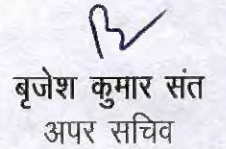 बृजेश कुमार संत
अपर सचिव